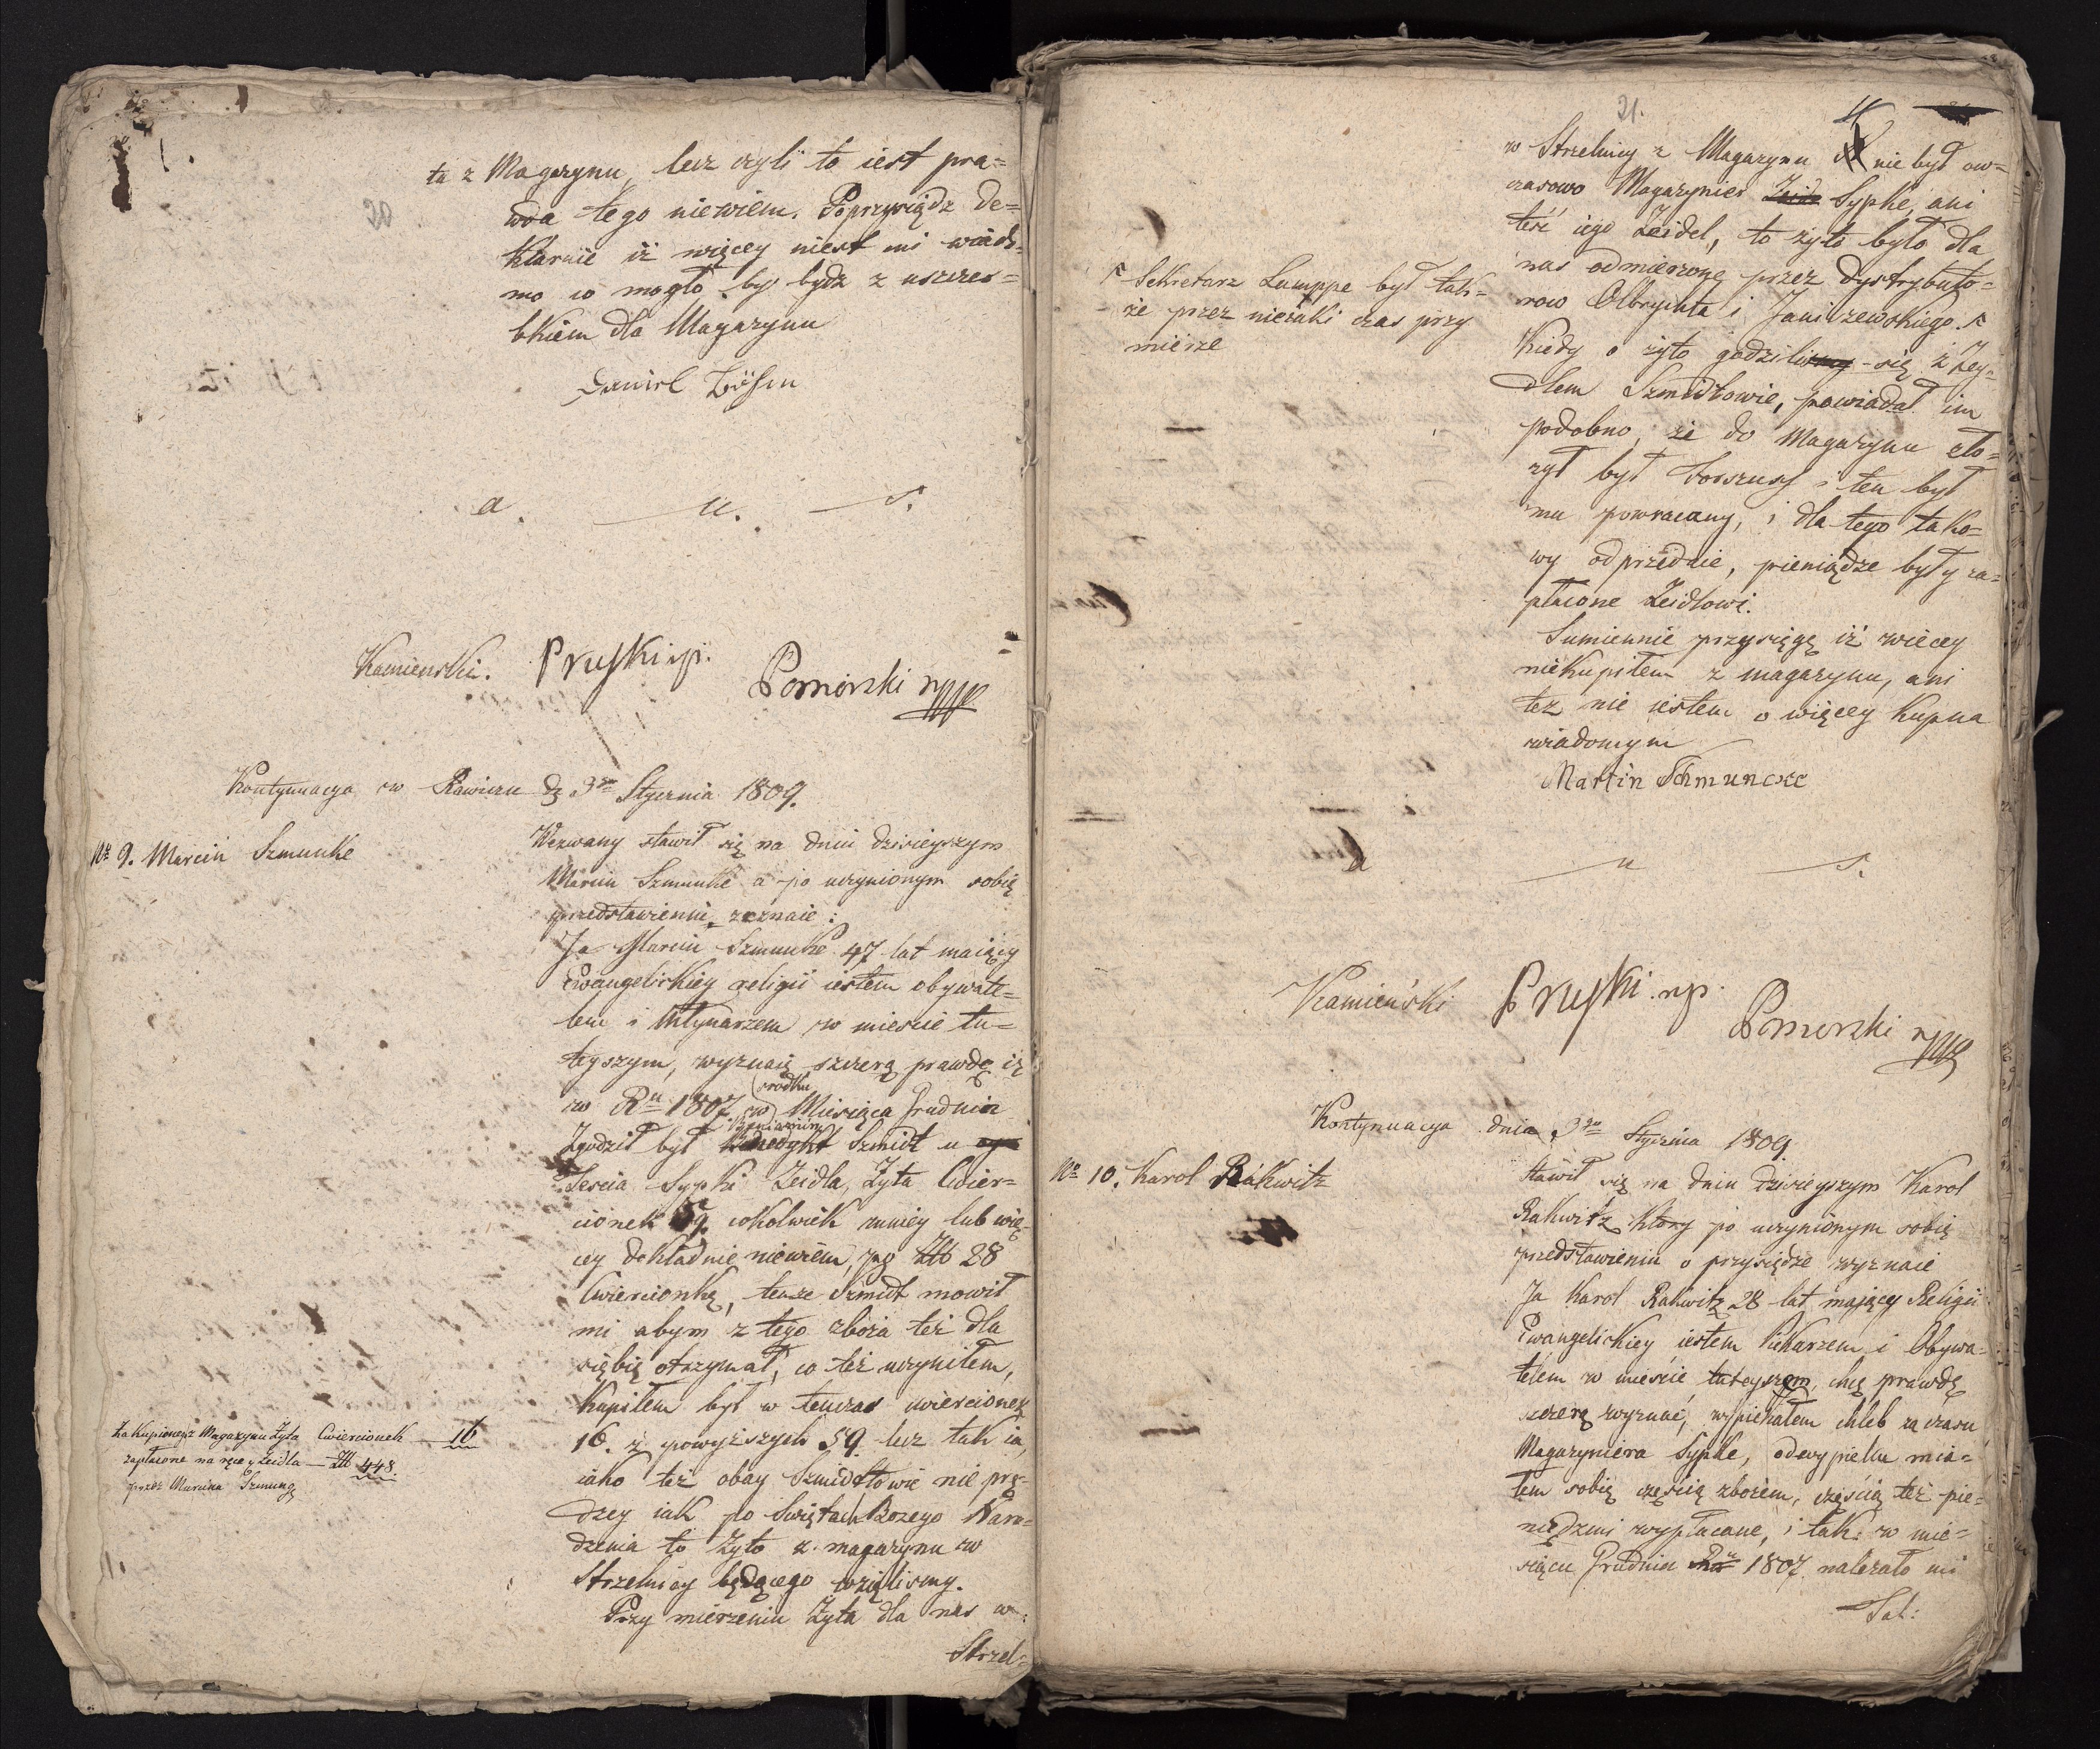 20
ta z Magazynu, lecz czyli to iest pra=
wda tego niewiem. Poprzysiądz de=
klaruie iż więcey niest mi wiado=
mo co mogło by bydz z uszczer=
bkiem dla Magazynu
Daniel Böhm
a. u. s.
Kamieński. Pruski mp. Pomorski mp
Kontynuacya w Rawiczu d. 3go Stycznia 1809.
No 9. Marcin Szmunke
Wezwany stawił się na dniu dzisieyszym
Marcin Szmunke a po uczynionym sobię
przedstawieniu zeznaie:
Ja Marcin Szmunke 47 lat maiący
Ewangelickiey religii iestem obywate=
lem i Młynarzem w mieście tu=
teyszym, wyznaię szczerą prawdę iż
w Ru 1807 w środku Miesiąca Grudnia
Zgodził był Beniamin Szmidt u
Teścia Sypki Zeidla, Żyta Cwier=
cionek 59. cokolwiek mniey lub wię=
cey dokładnie niewiem, po Zł 28
Cwiercionkę, tenże Szmidt mowił
mi abym z tego zboża też dla
siębię otrzymał, co też uczyniłem,
Kupiłem był w tenczas cwiercionek
16. z powyższych 59. lecz tak ia,
iako też obay Szmidtowie nie prę=
dzey iak po Swiętach Bozego Naro=
dzenia to żyto z magazynu w
Strzelnicy będącego wzięliśmy.
Przy mierzeniu Żyta dla nas w
Strzel=
Za kupione z Magazynu Żyta Cwiercionek 16
zapłacone na ręce Zeidla Zł 448.
przez Marcina Szmunę
21.
w Strzelnicy z Magazynu nie był ow=
czasowo Magazynier Sypke, ani
teść iego Zeidel, to żyto było dla
nas odmierzone przez dystrybuto=
row Olbrychta i Janiszewskiego.
Sekretarz Lumppe był tak=
że przez nieiaki czas przy
mierze
Kiedy o żyto godzili się z Zey=
dlem Szmidtowie, powiadał im
podobno, że do Magazynu zło=
żył był forszusz i ten był
mu powracany, i dla tego tako=
wy odprzedaie, pieniądze były za=
płacone Zeidlowi.
Sumiennie przysięgę iż więcey
niekupiłem z magazynu, ani
też nie iestem o więcey Kupna
wiadomym
Martin Schmuncke
a u s.
Kamieński Pruski mp. Pomorski mp
Kontynuacya dnia 3go Stycznia 1809.
No 10. Karol Rakwitz
Stawił się na dniu dzisieyszym Karol
Rakwitz który po uczynionym sobię
przedstawieniu o przysiędze wyznaie
Ja Karol Rakwitz 28 lat mający Religii
Ewangelickiey iestem Piekarzem i Obywa=
telem w mieście tuteyszem, chcę prawdę
szczerą wyznać, wypiekałem chleb za czasu
Magazyniera Sypke, od wypieku mia=
łem sobię częścią zbożem, częścią też pie=
niędzmi wypłacane, i tak w mie=
siącu Grudniu 1807 należało mi
Tal: